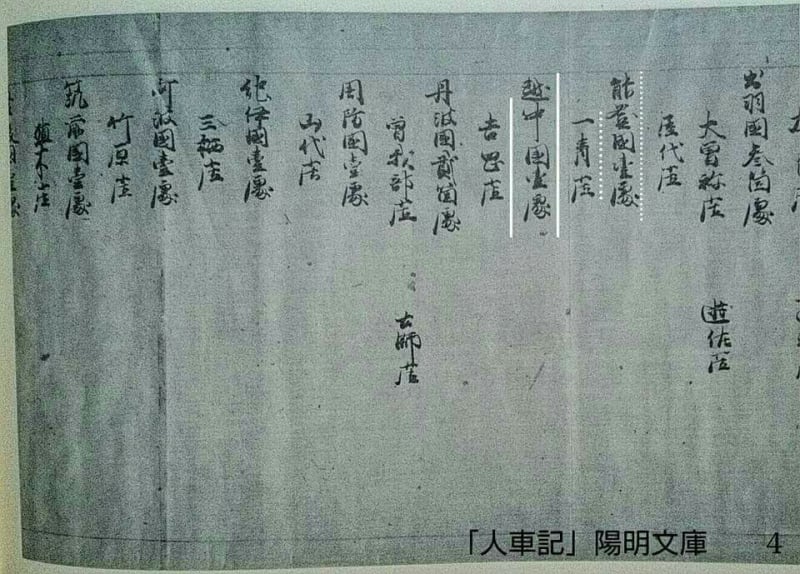 出羽國叁箇處
大曽祢庄　遊佐庄
屋代庄
能登國壹處
一青庄
越中國壹處
吉岡庄
丹波國貳箇處
曽我部庄　土師庄
周防國壹處
山代庄
紀伊國壹處
三栖庄
阿波國壹處
竹原庄
筑前國壹處
植木庄
「人車記」陽明文庫　4